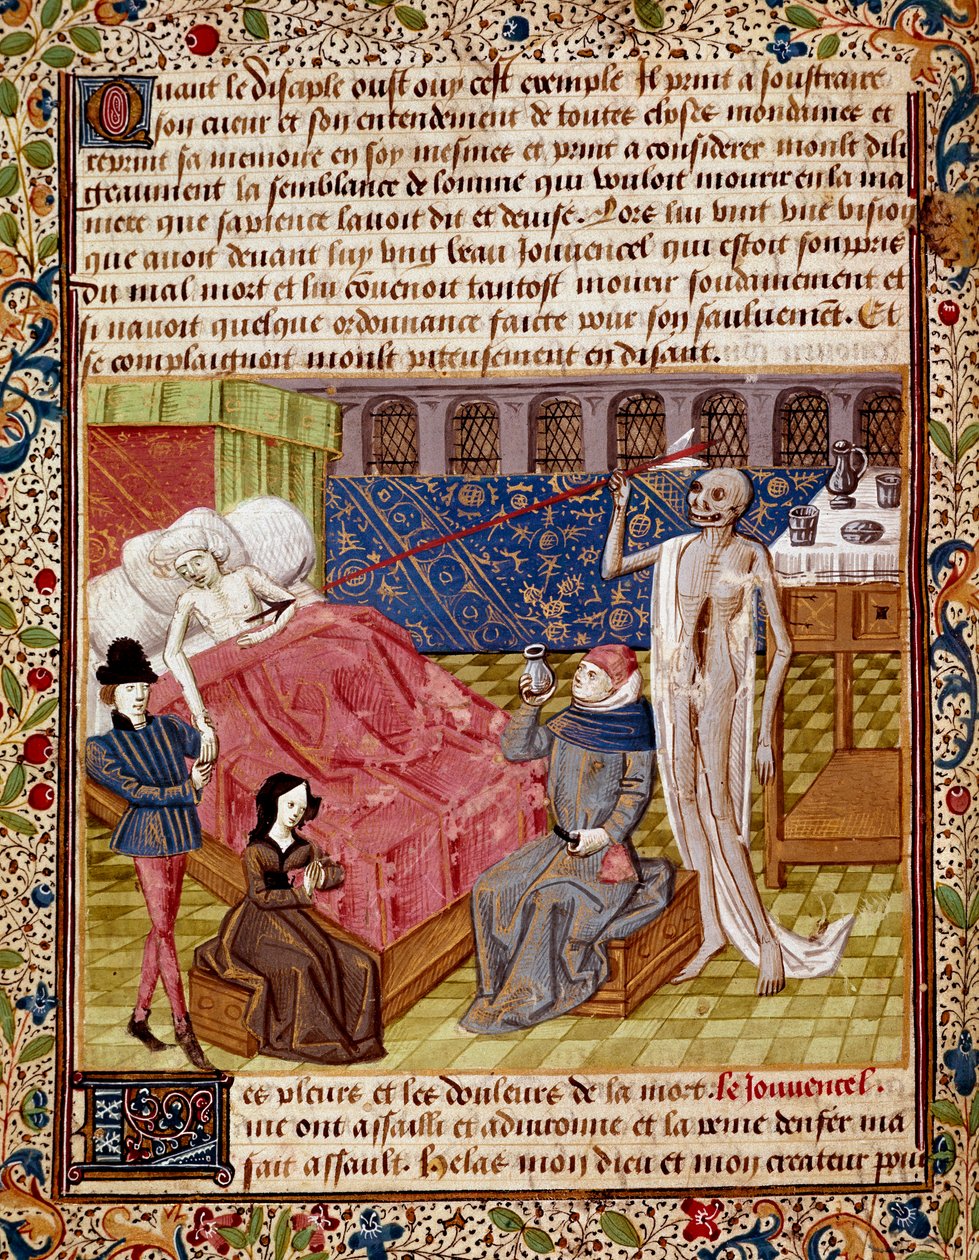 Quant le disciple oust ouy cest exemple Il print a soustraire
son cueur et son entendement de toutes choses mondaines et
reprint sa memoire en soy mesmes et print a considerer moult dili
geaument la semblance de lomme qui vouloit mourir en la ma
niere que sapience lavoit dit et devise. Lors lui vint une vision
que avoit devant luy ung beau Jouvencel qui estoit souppris
du mal mort et lui covenoit tantost mourir soudainement et
si navoit quelque ordonnance faicte pour son sauluemẽt. Et
se complaignoit moult piteusement en disant.
es pleurs et les douleurs de la mort. le Jouvencel.
me ont assailli et advironne et la peine denfer ma
fait assault. Helas mon dieu et mon createur pour